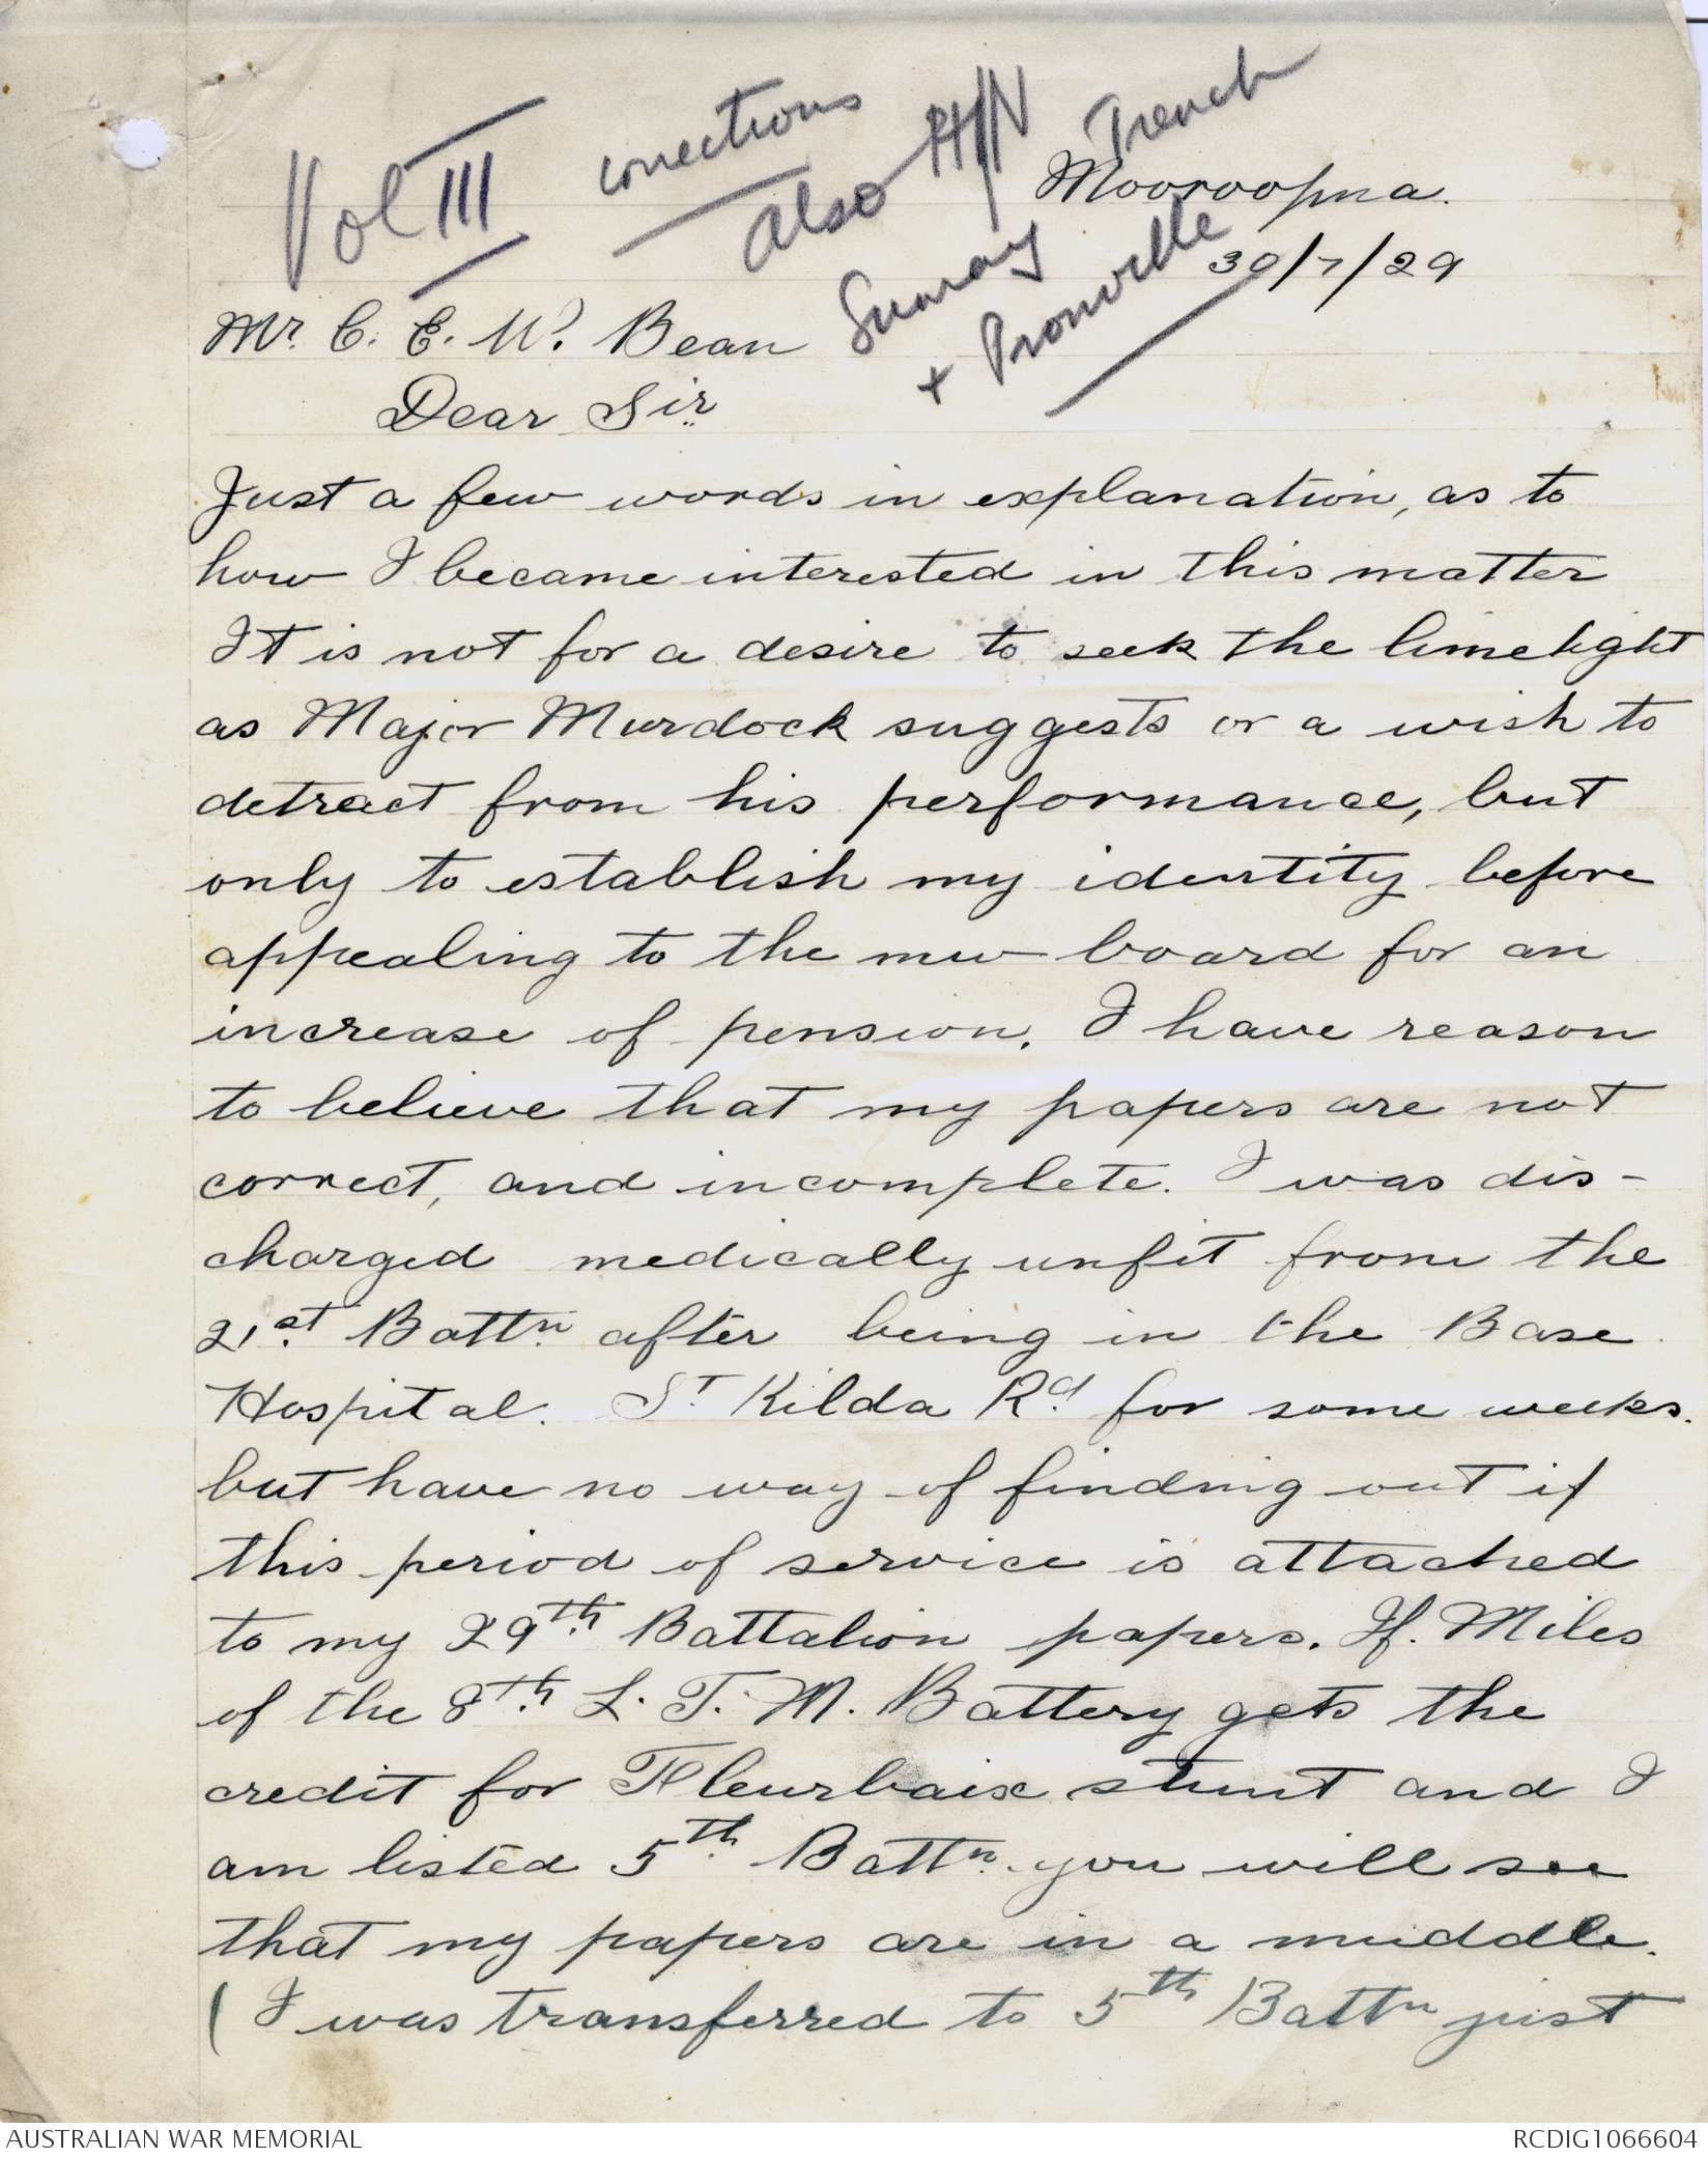 Vol III corrections
Also
Trench
+
Mooroopna.
30/7/29
Mr. C. E. W. Bean
Dear Sir
Just a few words in explanation, as to
how I became interested in this matter
It is not for a desire to seek the limelight
as Major Murdock suggests or a wish to
detract from his performance, but
only to establish my identity before
appealing to the new board for an
increase of pension. I have reason
to believe that my papers are not
correct, and incomplete. I was dis-
charged medically unfit from the
21st Battn after being in the Base
Hospital. St Kilda Rd for some weeks.
but have no way of finding out if
this period of service is attached
to my 29th Battalion papers. If. Miles
of the 8th L. T. M. Battery gets the
credit for Fleurbaix stunt and I
am listed 5th Battn. you will see
that my papers are in a muddle.
( I was transferred to 5th Battn just
AUSTRALIAN WAR MEMORIAL
RCDIG1066604